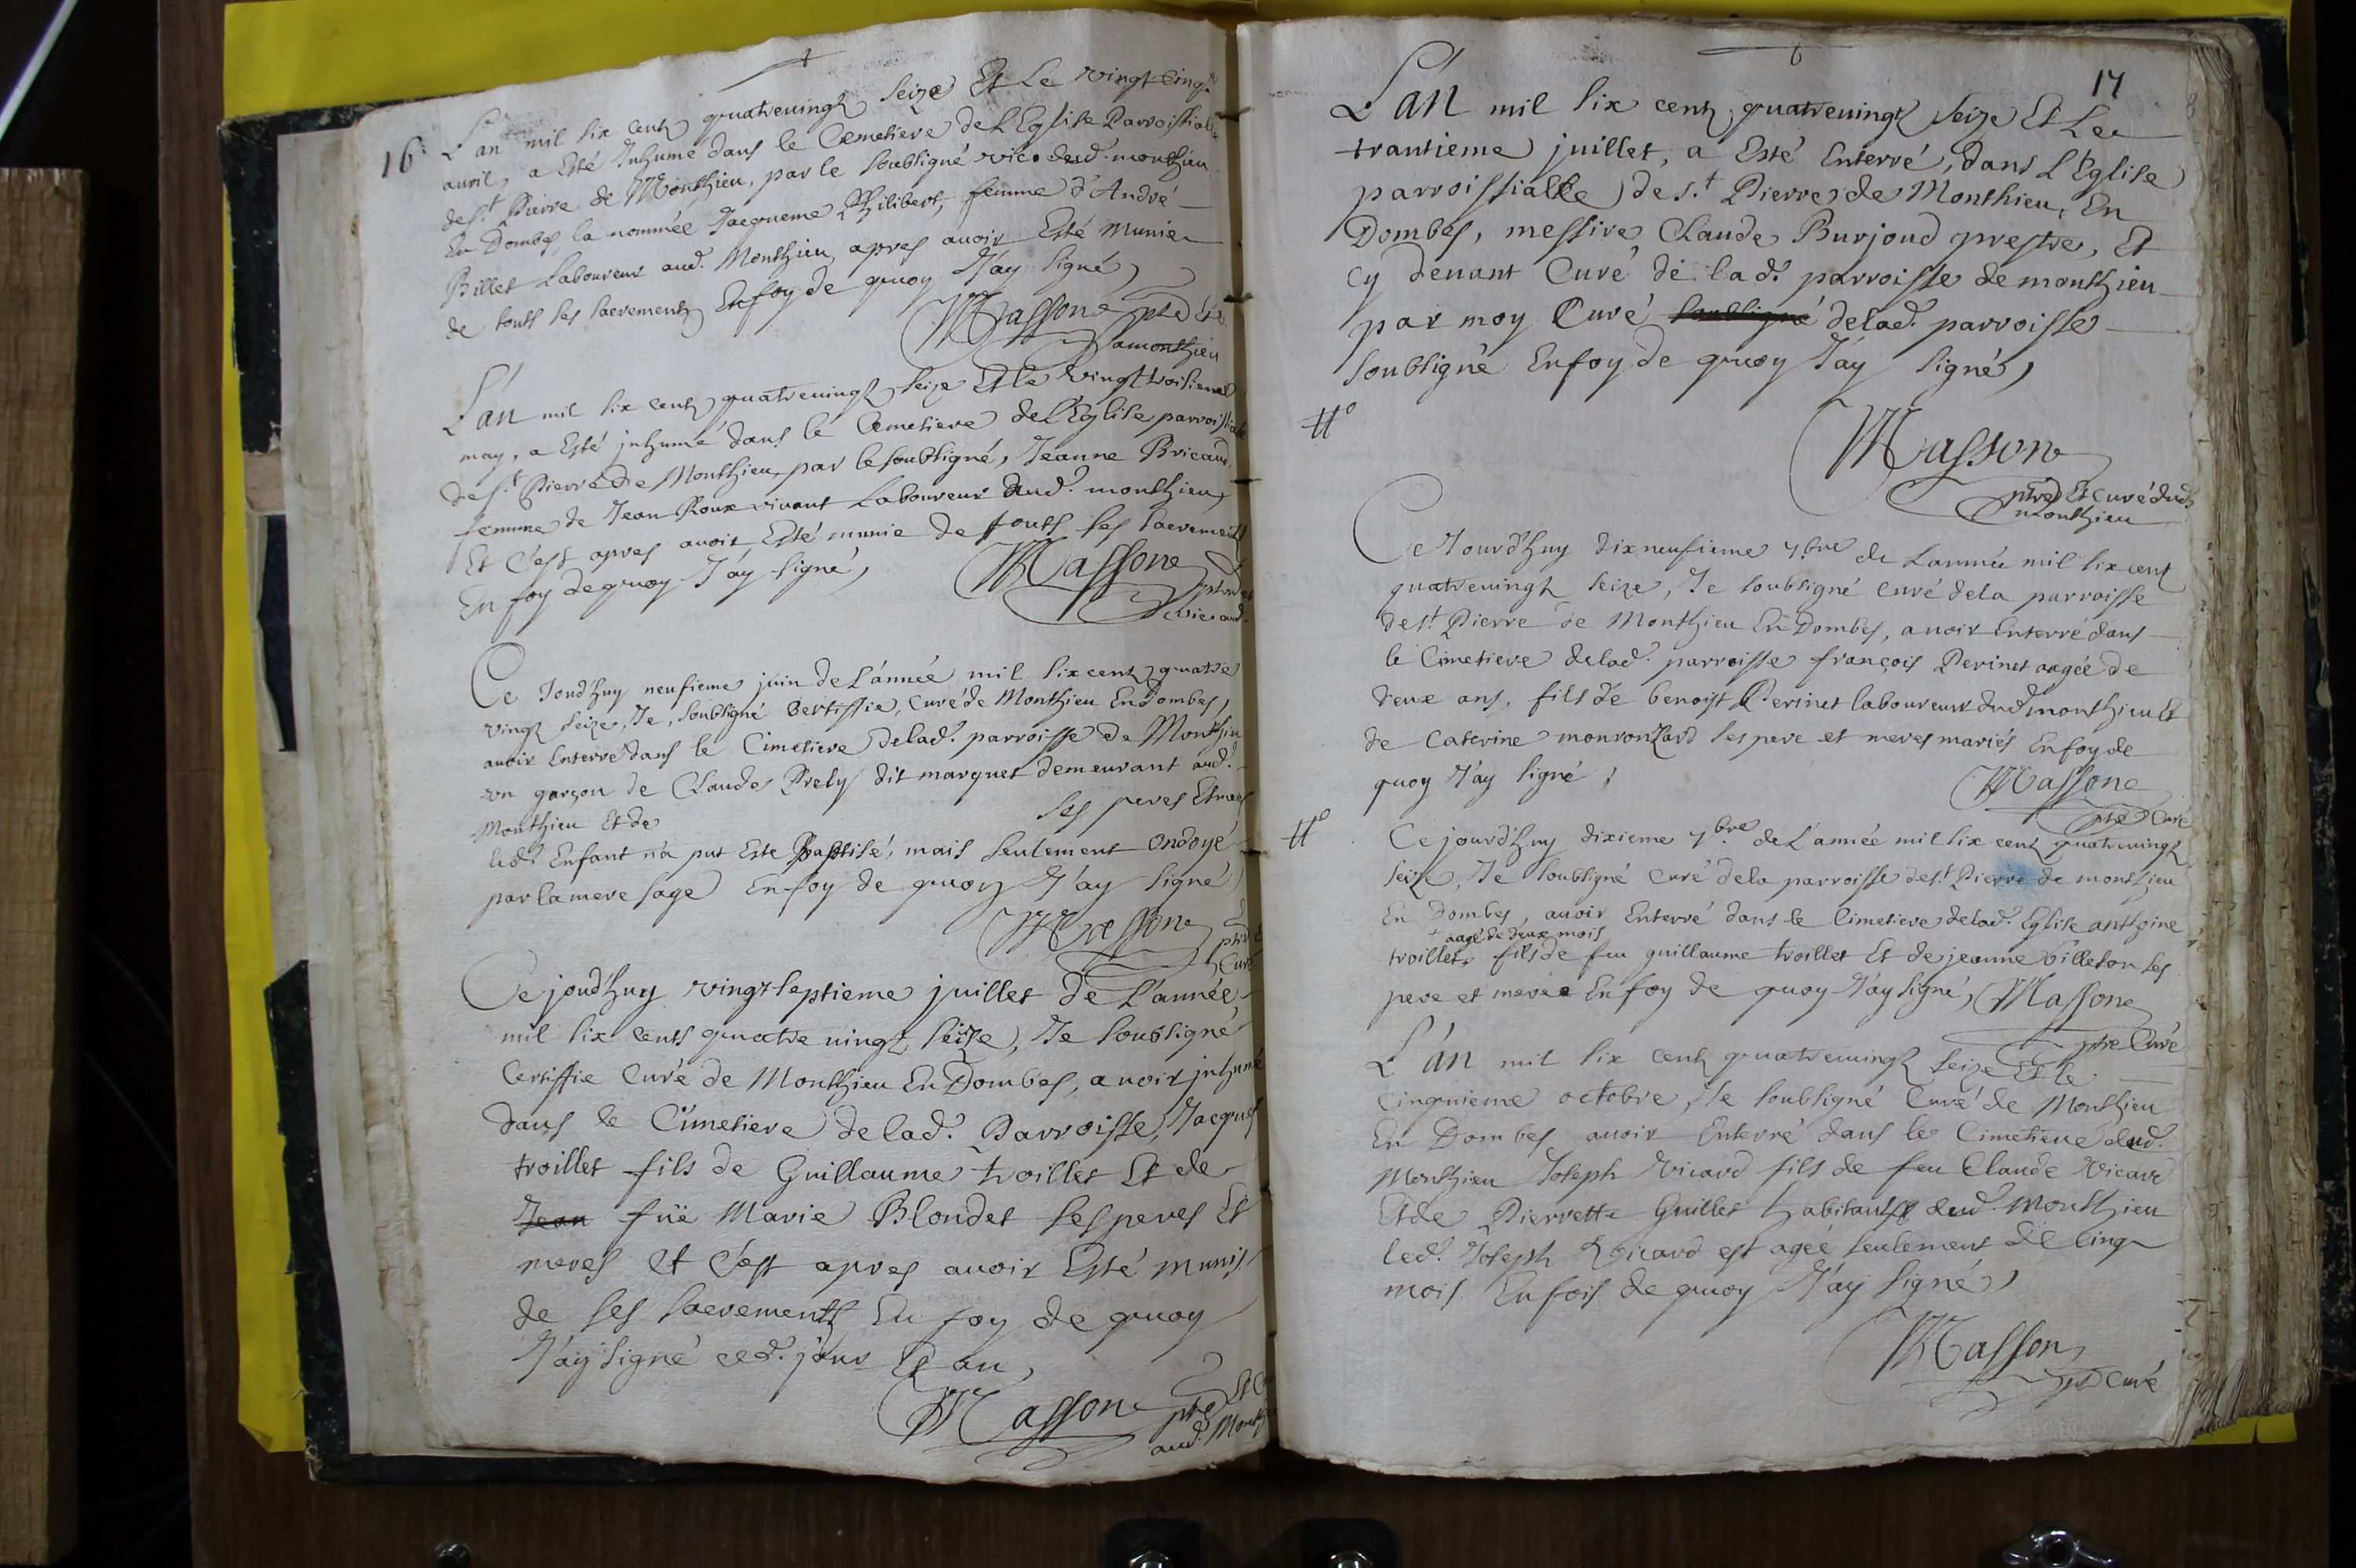 16.
L'an mil six centz quatrevingtz seize Et Le vingt cinq.e
avril, a Esté Inhumé dans le Cemetiere de L'Eglise Parroissiale
de s.t Pierre de Monthieu, par le soubsigné vic. dud. monthieu
En Dombes la nommée Jacqueme Philibert, femme d'André
Billet Laboureur aud. Monthieu, apres avoir Esté munie
de touts ses sacrementz En foy de quoy J'ay signé,
Massone ptre
a monthieu
L'an mil six centz quatrevingtz seize Et le vingt troisieme
may, a Esté inhumé dans le Cemetiere de L'Eglise parroissiale
de s.t Pierre de Monthieu, par le soubsigné, Jeanne Bricaud
femme de Jean Roux vivant Laboureur dud. monthieu,
Et C'est apres avoir Esté munie de touts ses sacrements
En foy de quoy J'ay signé,
Massone ptre et
vic. aud.
Ce Joud'huy neufieme juin de L'année mil six centz quatre
vingtz seize, Je, soubsigné Certiffie, Curé de Monthieu En Dombes,
avoir Enterré dans le Cimetiere de lad. parroisse de Monthieu
un garçon de Claude Prely dit marquet demeurant aud.
Monthieu Et de ses peres Et meres
led. Enfant n'a put Este Baptisé, mais seulement ondoyé
par la mere sage En foy de quoy J'ay signé,
Massone ptre et
Curé
Ce joud'huy vingt septieme juillet de L'année
mil six cents quatre vingtz seize, Je soubsigné
Certiffie Curé de Monthieu En Dombes, avoir inhumé
dans le Cimetiere de lad. Parroisse, Jacques
troillet fils de Guillaume troillet Et de
Jean füe Marie Blondet ses peres Et
meres et C'est apres avoir Esté munis
de ses sacrements En foy de quoy
J'ay signé ced. jour Et an,
Massone ptre Et C
aud. Month
17
L'an mil six centz quatrevingtz seize Et Le
trantieme juillet, a Esté Enterré, dans L'Eglise
parroissialle de s.t Pierre de Monthieu, En
Dombes, messire Claude Burjoud prestre, Et
cy devant Curé de lad. parroisse de monthieu
par moy Curé soubsigné de lad. parroisse
soubsigné En foy de quoy J'ay signé,
Masson
ptre Et curé dud.
monthieu
Ce Jourd'huy dix neufieme 7.bre de L'année mil six centz
quatrevingtz seize, Je soubsigné curé de la parroisse
de s.t Pierre de Monthieu En Dombes, avoir Enterré dans
le Cimetiere de lad. parroisse françois Perinet aagée de
deux ans, fils de benoist Perinet laboureur dud monthieu Et
de Caterine monronzard ses pere et meres mariés En foy de
quoy J'ay signé,
Massone
ptre Curé
Ce jourd'huy dixieme 7.bre de L'année mil six centz quatrevingtz
seize, Je soubsigné curé de la parroisse de s.t Pierre de monthieu
En Dombes, avoir Enterré dans le Cimetiere de lad. Eglise anthoine
+ aagé de deux mois
troillet + fils de feu guillaume troillet Et de jeanne billeton ses
pere et merée En foy de quoy J'ay signé, Massone
ptre Curé
L'an mil six centz quatrevingtz seize Et le
cinquieme octobre, Je soubsigné Curé de Monthieu
En Dombes avoir Enterré dans le Cimetiere dud.
Monthieu Joseph Vicard fils de feu Claude Vicard
Et de Pierrette Guillet habitants dud. Monthieu
led. Joseph Vicard est agée seulement de Cinq
mois En fois de quoy J'ay signé,
Masson
ptre curé